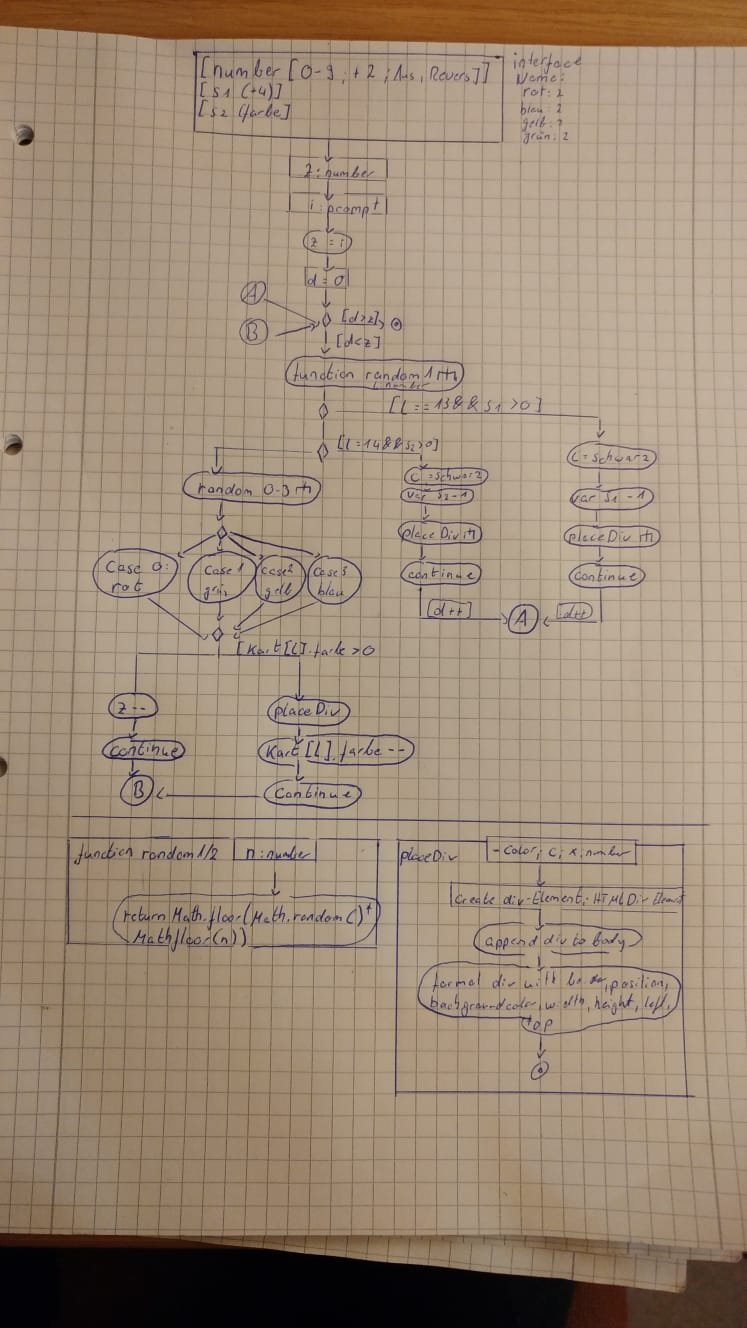 [number [0-9, +2, Aus, Revers]]
[S1 (+4)]
[S2 (farbe]
interface
Name:
rot: 2
blau: 2
gelb: 2
grün: 2
z:number
i:prompt
z = i
d = 0
A
B
[d>z]
[d<z]
function random1
: number
[L==13&& S1 >0]
[L=14&&S2>0]
random 0-3
C=schwarz
var S2-1
placeDiv
continue
[d++]
C=schwarz
var S1 -1
placeDiv
continue
[d++]
A
Case 0:
rot
Case 1
grün
Case2
gelb
Case3
blau
[Kart[L].farbe >0
z--
continue
B
placeDiv
Kart[L].farbe--
Continue
function random1/2
n:number
return Math.floor(Math.random()*
Math.floor(n))
placeDiv
-Color; C; x:number
Create div-Element: HTMLDivElement
append div to body
format div with border, position,
backgroundcolor, width, height, left,
top